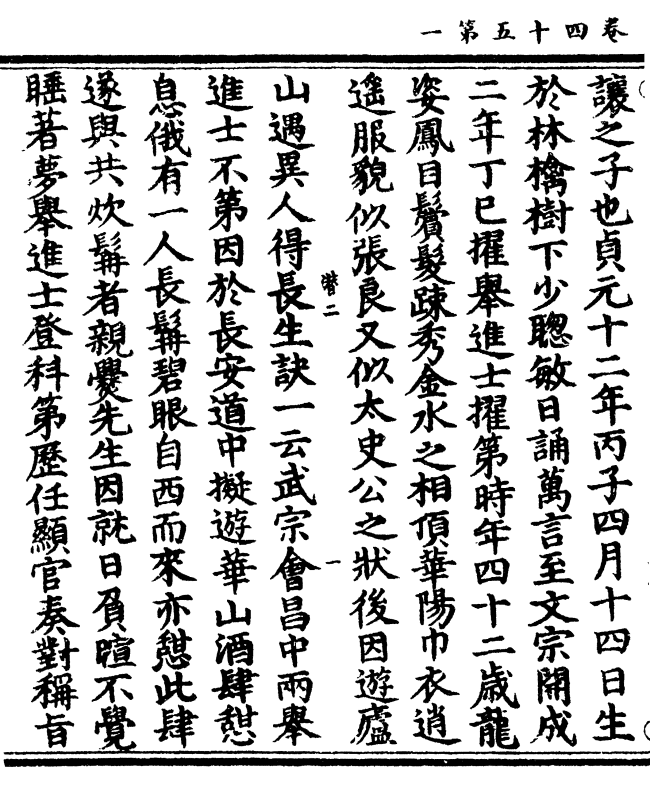 卷四十五第一
讓之子也貞元十二年丙子四月十四日生
於林檎樹下少聰敏日誦萬言至文宗開成
二年丁巳擢舉進士擢第時年四十二歲龍
姿鳳目鬢髮疎秀金水之相頂華陽巾衣逍
遙服貌似張良又似太史公之狀後因遊廬
山遇異人得長生訣一云武宗會昌中兩舉
進士不第因於長安道中擬遊華山酒肆憇
息俄有一人長髯碧眼自西而來亦憇此肆
遂與共炊髯者親爨先生因就日負暄不覺
睡著夢舉進士登科第歷任顯官奏對稱旨
二
一